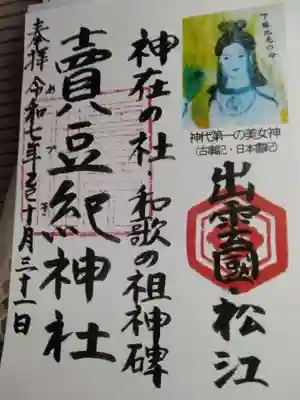 下照比売の命
神代第一の美女神
(古事記・日本書紀)
出雲國・松江
神在の社・和歌の祖神碑
賣豆紀神社
めづき
奉拝 令和七年乙巳十月三十一日